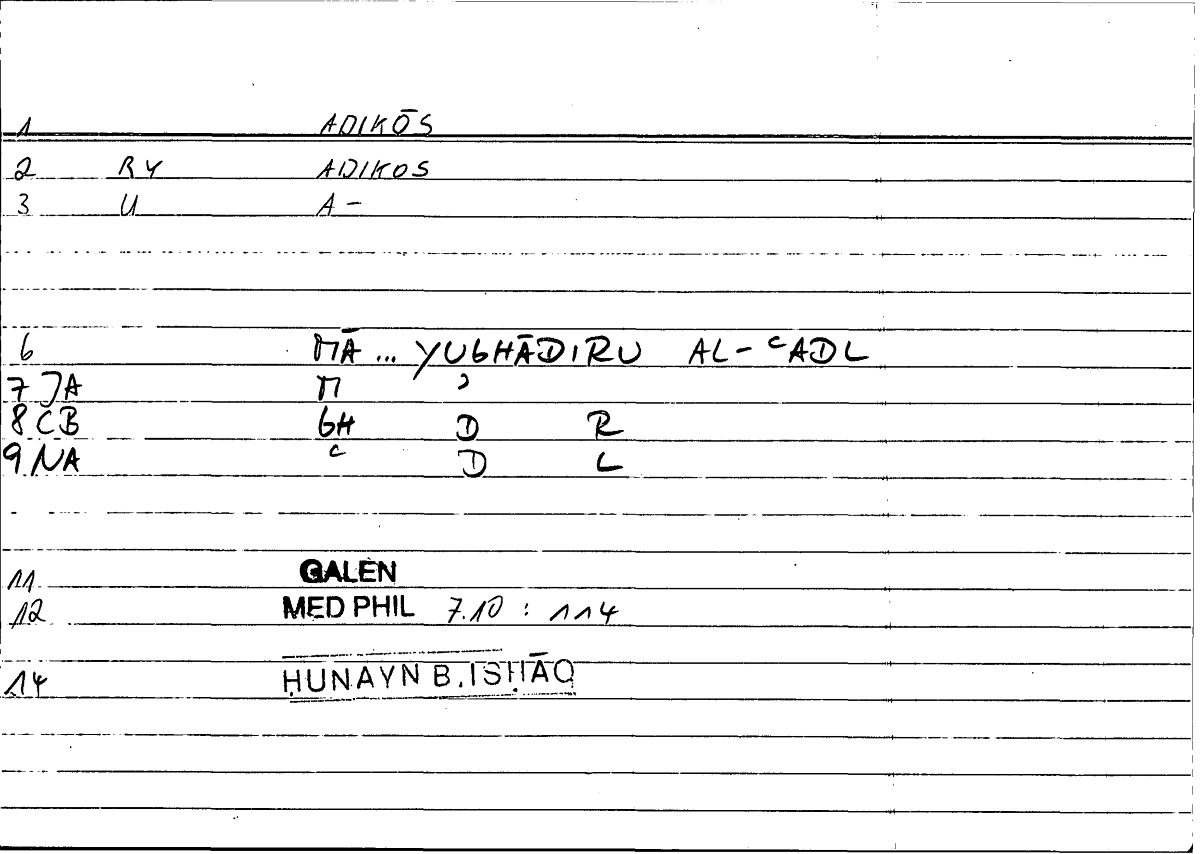 1 ADIKŌS
2 RY ADIKOS
3 U A-
6 MĀ ... YUGHĀDIRU AL-ᶜADL
7 JA M ʾ
8 CB GH D R
9 NA ᶜ D L
11 GALEN
12 MED PHIL 7.10 : 114
14 ḤUNAYN B. ISḤĀQ